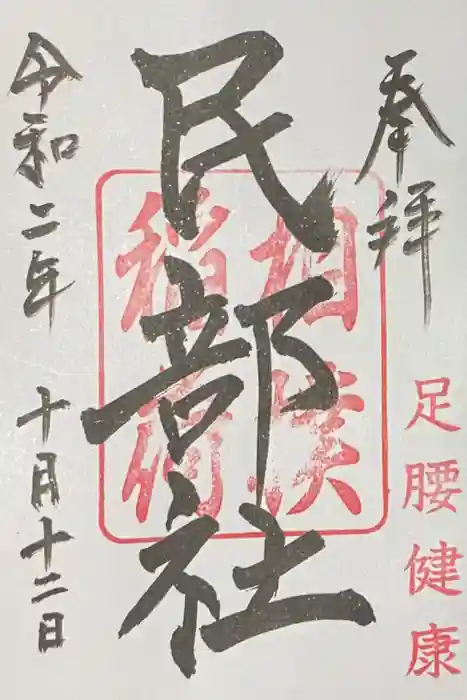 奉拝
足腰健康
民部社
相撲
稲荷
令和二年 十月十二日